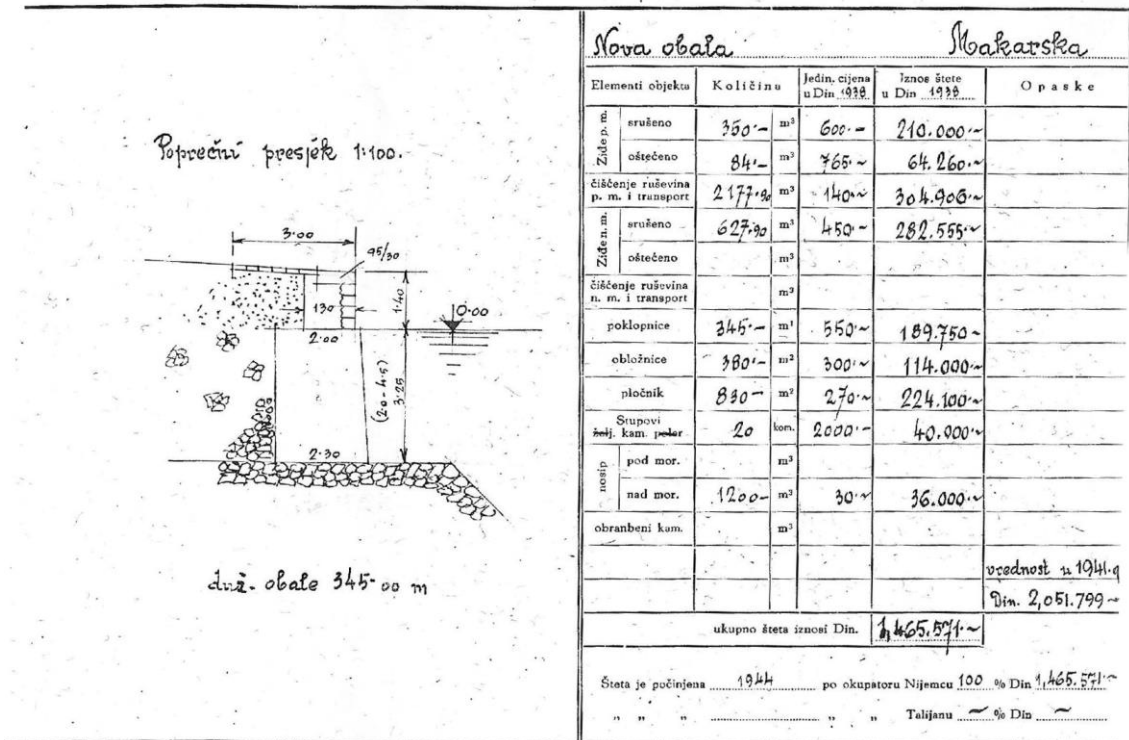 Poprečni presjek 1:100.
3·00
45/30
1·40
130
0·00
2·00
(2·0-4·5)
3·25
2·30
duž. obale 345·00 m
Nova obala Makarska
Elementi objekta Količina Jedin. cijena u Din 1938 Iznos štete u Din 1938 Opaske
Ziđe p. m. srušeno 350·- m³ 600·- 210.000·~
oštećeno 84·- m³ 765·~ 64.260·~
čišćenje ruševina p. m. i transport 2177·90 m³ 140·~ 304.906·~
Ziđe n. m. srušeno 627·90 m³ 450·~ 282.555·~
oštećeno m³
čišćenje ruševina n. m. i transport m³
poklopnice 345·- m¹ 550·~ 189.750·~
obložnice 380·- m² 300·~ 114.000·~
pločnik 830- m² 270·~ 224.100·~
Stupovi želj. kam. poler 20 kom. 2000·- 40.000·~
nosip pod mor. m³
nad mor. 1200- m³ 30·~ 36.000·~
obranbeni kam. m³
vrednost u 1941.g
Din. 2,051.799~
ukupno šteta iznosi Din. 1,465.571·~
Šteta je počinjena 1944 po okupatoru Nijemcu 100 % Din 1,465.571·~
" " " " " Talijanu ~ % Din ~